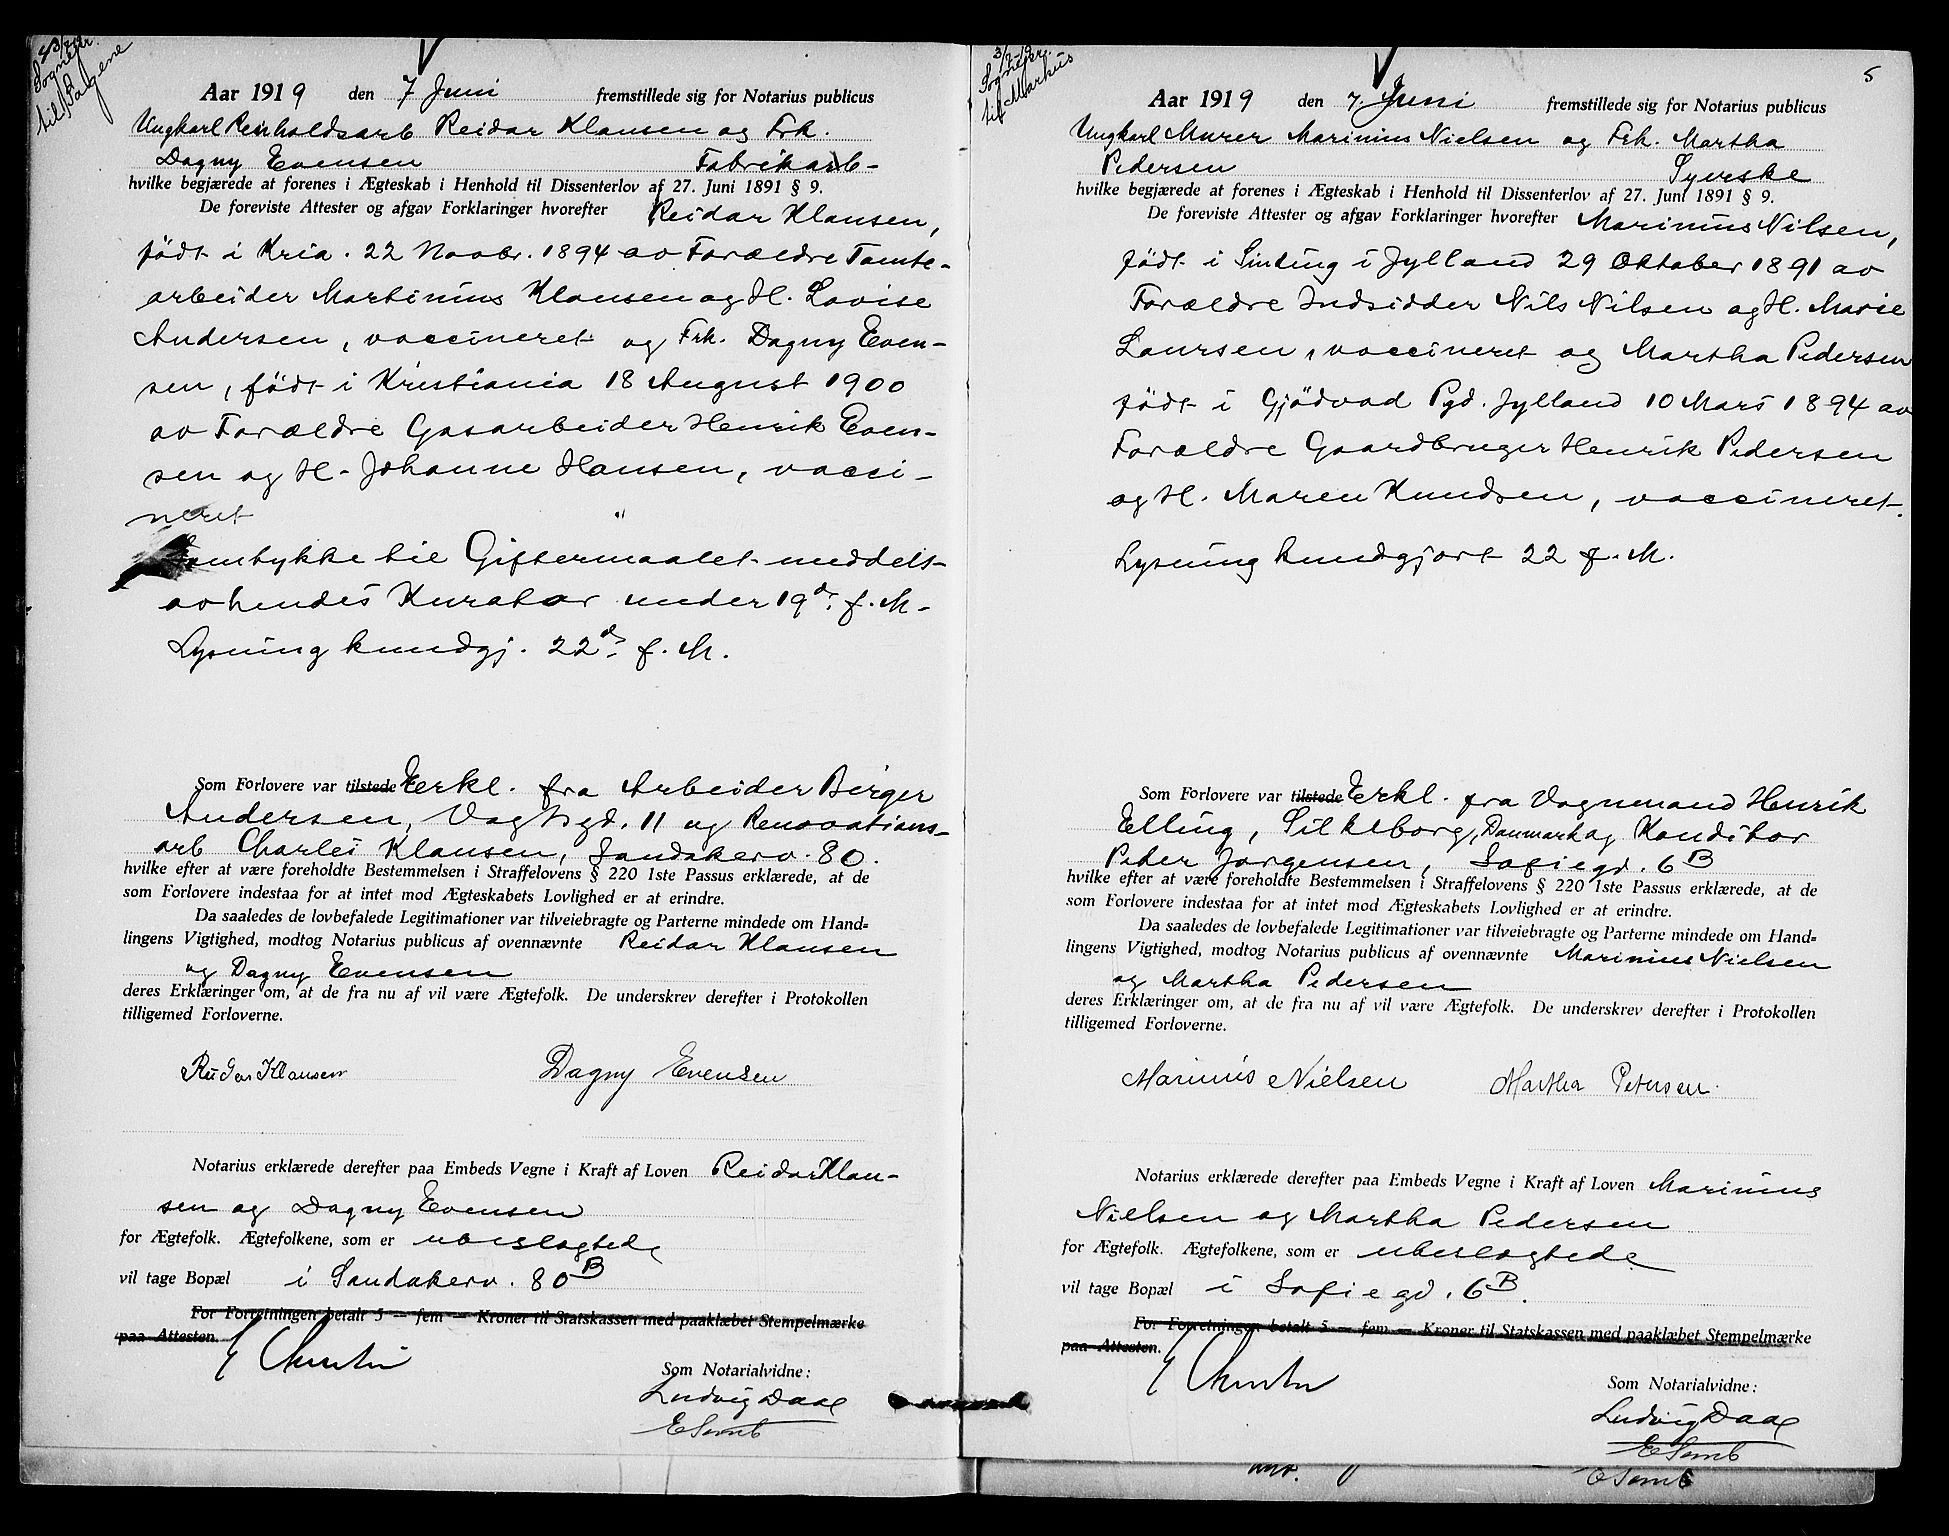 Sognepr.
til Sagene
Aar 1919 den 7 Juni fremstillede sig for Notarius publicus
Ungkarl Renholdsarb Reidar Klausen og Frk.
Dagny Evensen Fabrikarb-
hvilke begjærede at forenes i Ægteskab i Henhold til Dissenterlov af 27. Juni 1891 § 9.
De foreviste Attester og afgav Forklaringer hvorefter Reidar Klausen,
födt i Kria. 22 Novbr. 1894 av Forældre Tomte-
arbeider Martinius Klausen og H. Lovise
Andersen, vaccineret og Frk. Dagny Even-
sen, födt i Kristiania 18 August 1900
av Forældre Gasarbeider Henrik Even-
sen og H. Johanne Hansen, vacci-
neret "
Samtykke til Giftermaalet meddelt
av hendes Kurator under 19d. f. M.
Lysning kundgj. 22d. f. M.
Som Forlovere var tilstede Erkl. fra Arbeider Birger
Andersen, Vogtsgd. 11 og Renovations-
arb Charles Klausen, Sandakerv. 80.
hvilke efter at være foreholdte Bestemmelsen i Straffelovens § 220 1ste Passus erklærede, at de
som Forlovere indestaa for at intet mod Ægteskabets Lovlighed er at erindre.
Da saaledes de lovbefalede Legitimationer var tilveiebragte og Parterne mindede om Hand=
lingens Vigtighed, modtog Notarius publicus af ovennævnte Reidar Klausen
og Dagny Evensen
deres Erklæringer om, at de fra nu af vil være Ægtefolk. De underskrev derefter i Protokollen
tilligemed Forloverne.
Reidar Klausen Dagny Evensen
Notarius erklærede derefter paa Embeds Vegne i Kraft af Loven Reidar Klau-
sen og Dagny Evensen
for Ægtefolk. Ægtefolkene, som er ubeslegtede
vil tage Bopæl i Sandakerv. 80B
For Forretningen betalt 5 — fem — Kroner til Statskassen med paaklæbet Stempelmærke
paa Attesten.
Som Notarialvidne:
Ludvig Daae
E Semb
Sognepr.
til Markus
5
Aar 1919 den 7 Juni fremstillede sig for Notarius publicus
Ungkarl Murer Marinius Nielsen og Frk. Martha
Pedersen Syerske
hvilke begjærede at forenes i Ægteskab i Henhold til Dissenterlov af 27. Juni 1891 § 9.
De foreviste Attester og afgav Forklaringer hvorefter Marinius Nilsen,
födt i Sinding i Jylland 29 Oktober 1891 av
Forældre Indsidder Nils Nilsen og H. Marie
Laursen, vaccineret og Martha Pedersen
födt i Gjödvad Pgd. Jylland 10 Mars 1894 av
Forældre Gaardbruger Henrik Pedersen
og H. Maren Knudsen, vaccineret.
Lysning kundgjort 22 f. M.
Som Forlovere var tilstede Erkl. fra Vognmand Henrik
Elling, Silkeborg, Danmark og Konditor
Peder Jørgensen, Sofiegd. 6B
hvilke efter at være foreholdte Bestemmelsen i Straffelovens § 220 1ste Passus erklærede, at de
som Forlovere indestaa for at intet mod Ægteskabets Lovlighed er at erindre.
Da saaledes de lovbefalede Legitimationer var tilveiebragte og Parterne mindede om Hand=
lingens Vigtighed, modtog Notarius publicus af ovennævnte Marinius Nielsen
og Martha Pedersen
deres Erklæringer om, at de fra nu af vil være Ægtefolk. De underskrev derefter i Protokollen
tilligemed Forloverne.
Marinus Nielsen Martha Petersen.
Notarius erklærede derefter paa Embeds Vegne i Kraft af Loven Marinius
Nielsen og Martha Pedersen
for Ægtefolk. Ægtefolkene, som er ubeslegtede
vil tage Bopæl i Sofiegd. 6B.
For Forretningen betalt 5 — fem — Kroner til Statskassen med paaklæbet Stempelmærke
paa Attesten.
Som Notarialvidne:
Ludvig Daae
E Semb
E Semb